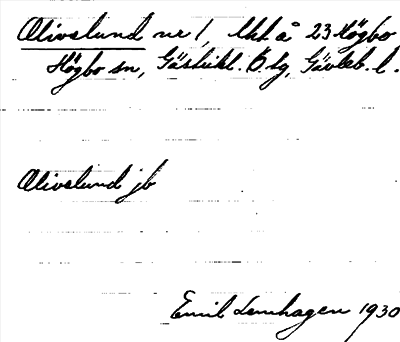 Olivelund nr 1, Uhl å 23 Högbo
Högbo sn, Gästrikl. Ö. tg, Gävleb. l.
Olivelund jb
Emil Lennhagen 1930